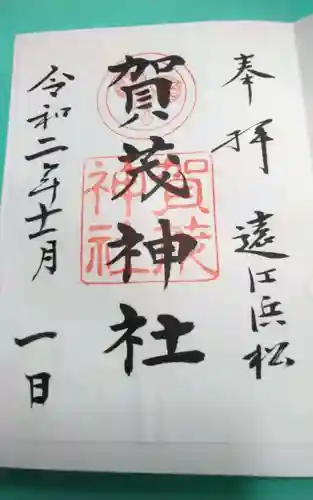 奉拝　遠江浜松
賀茂神社
賀茂神社
令和二年十一月　一日